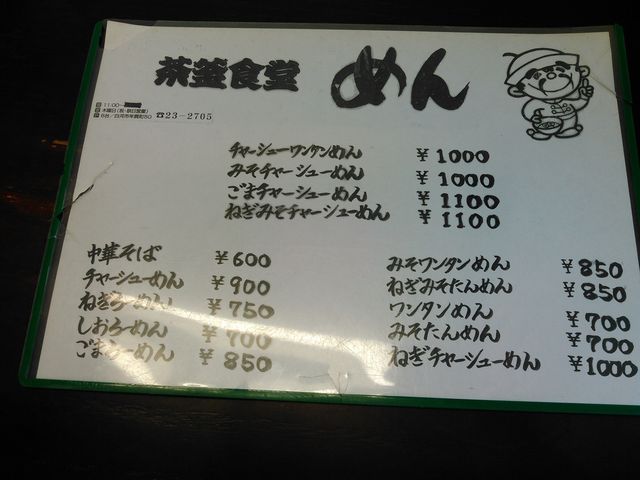 茶釜食堂 めん
11:00―
木曜日(祝・祭日営業)
5台/白河市年貢町50 ☎23-2705
チャーシューワンタンめん ¥1000
みそチャーシューめん ¥1000
ごまチャーシューめん ¥1100
ねぎみそチャーシューめん ¥1100
中華そば ¥600
チャーシューめん ¥900
ねぎらーめん ¥750
しおらーめん ¥700
ごまらーめん ¥850
みそワンタンめん ¥850
ねぎみそたんめん ¥850
ワンタンめん ¥700
みそたんめん ¥700
ねぎチャーシューめん ¥1000